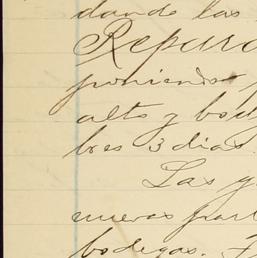 dando las
Repara
poniendo
alto y bod
bres 3 dias.
Las y
nuevas part
bodegas.